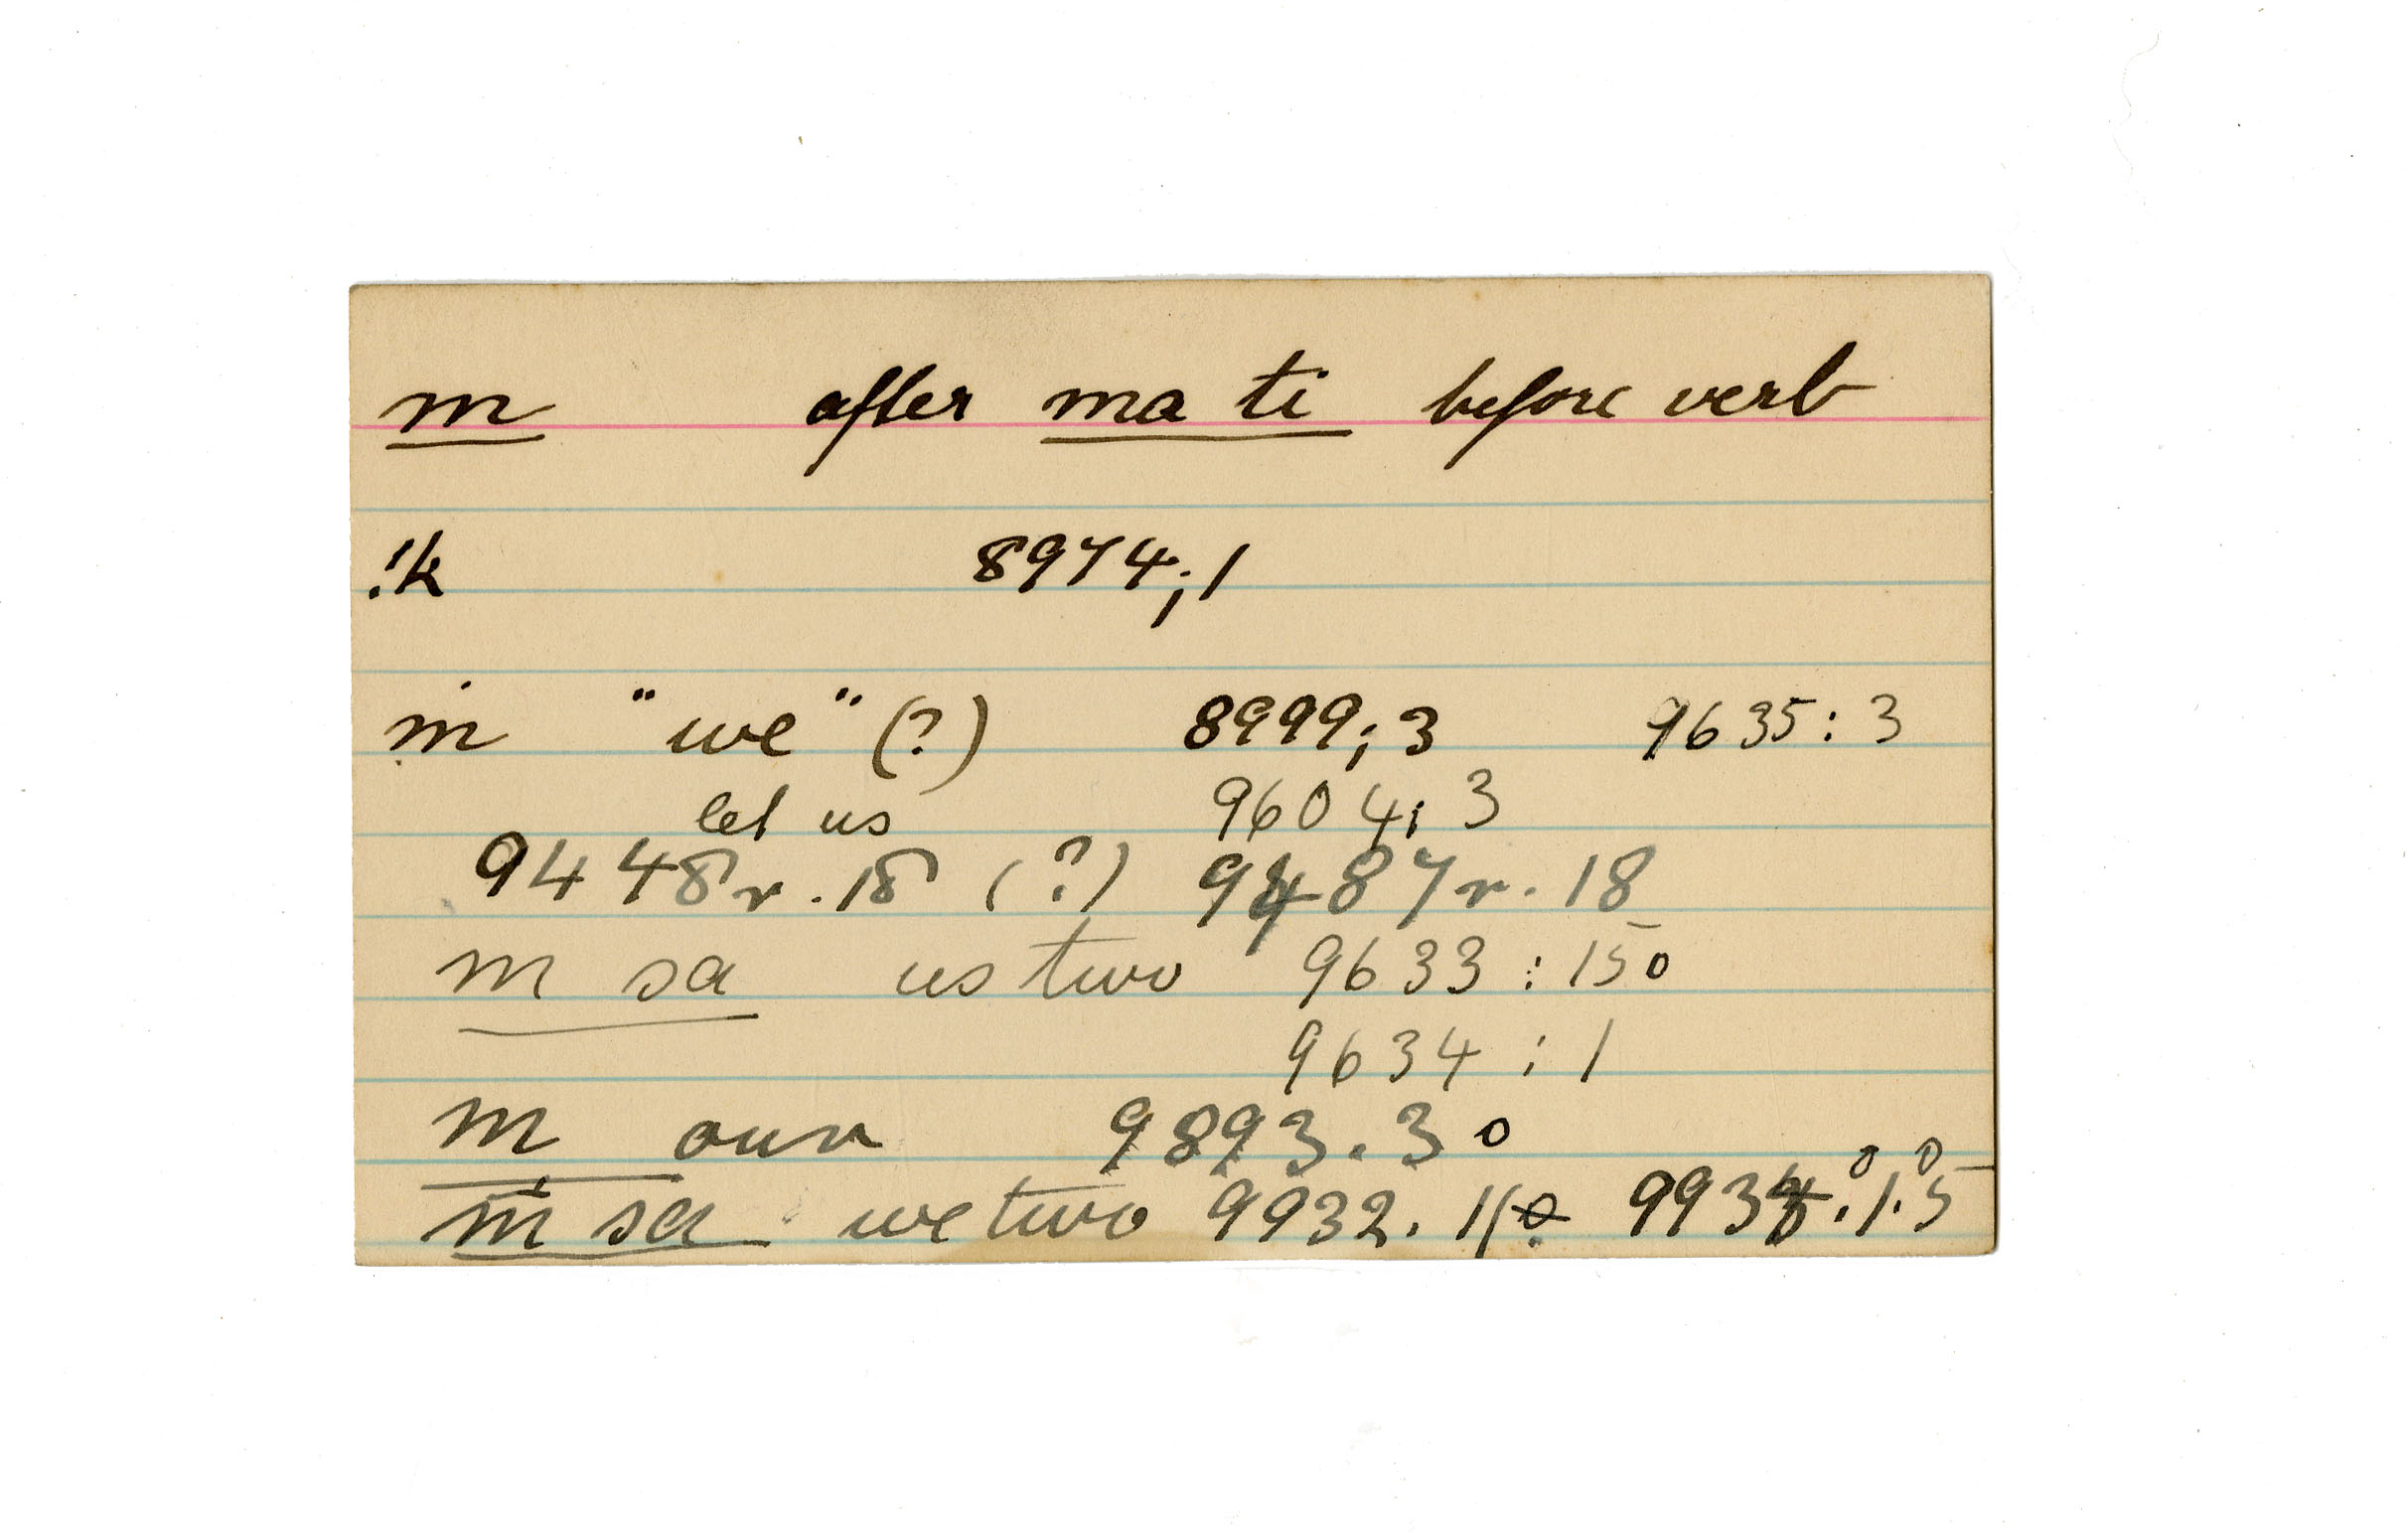 m after ma ti before verb
!k 8974;1
ṁ "we" (?) 8999;3 9635:3
let us 9604;3
9448r.18 (?) 9487r.18
m sa us two 9633:150
9634:1
m our 9893.30
ṁ sa we two 9932.